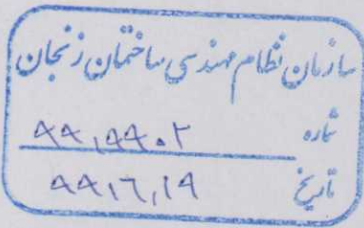 سازمان نظام مهندسی ساختمان زنجان
شماره ۹۹،۹۹۰۲
تاریخ ۹۹،۶،۱۹